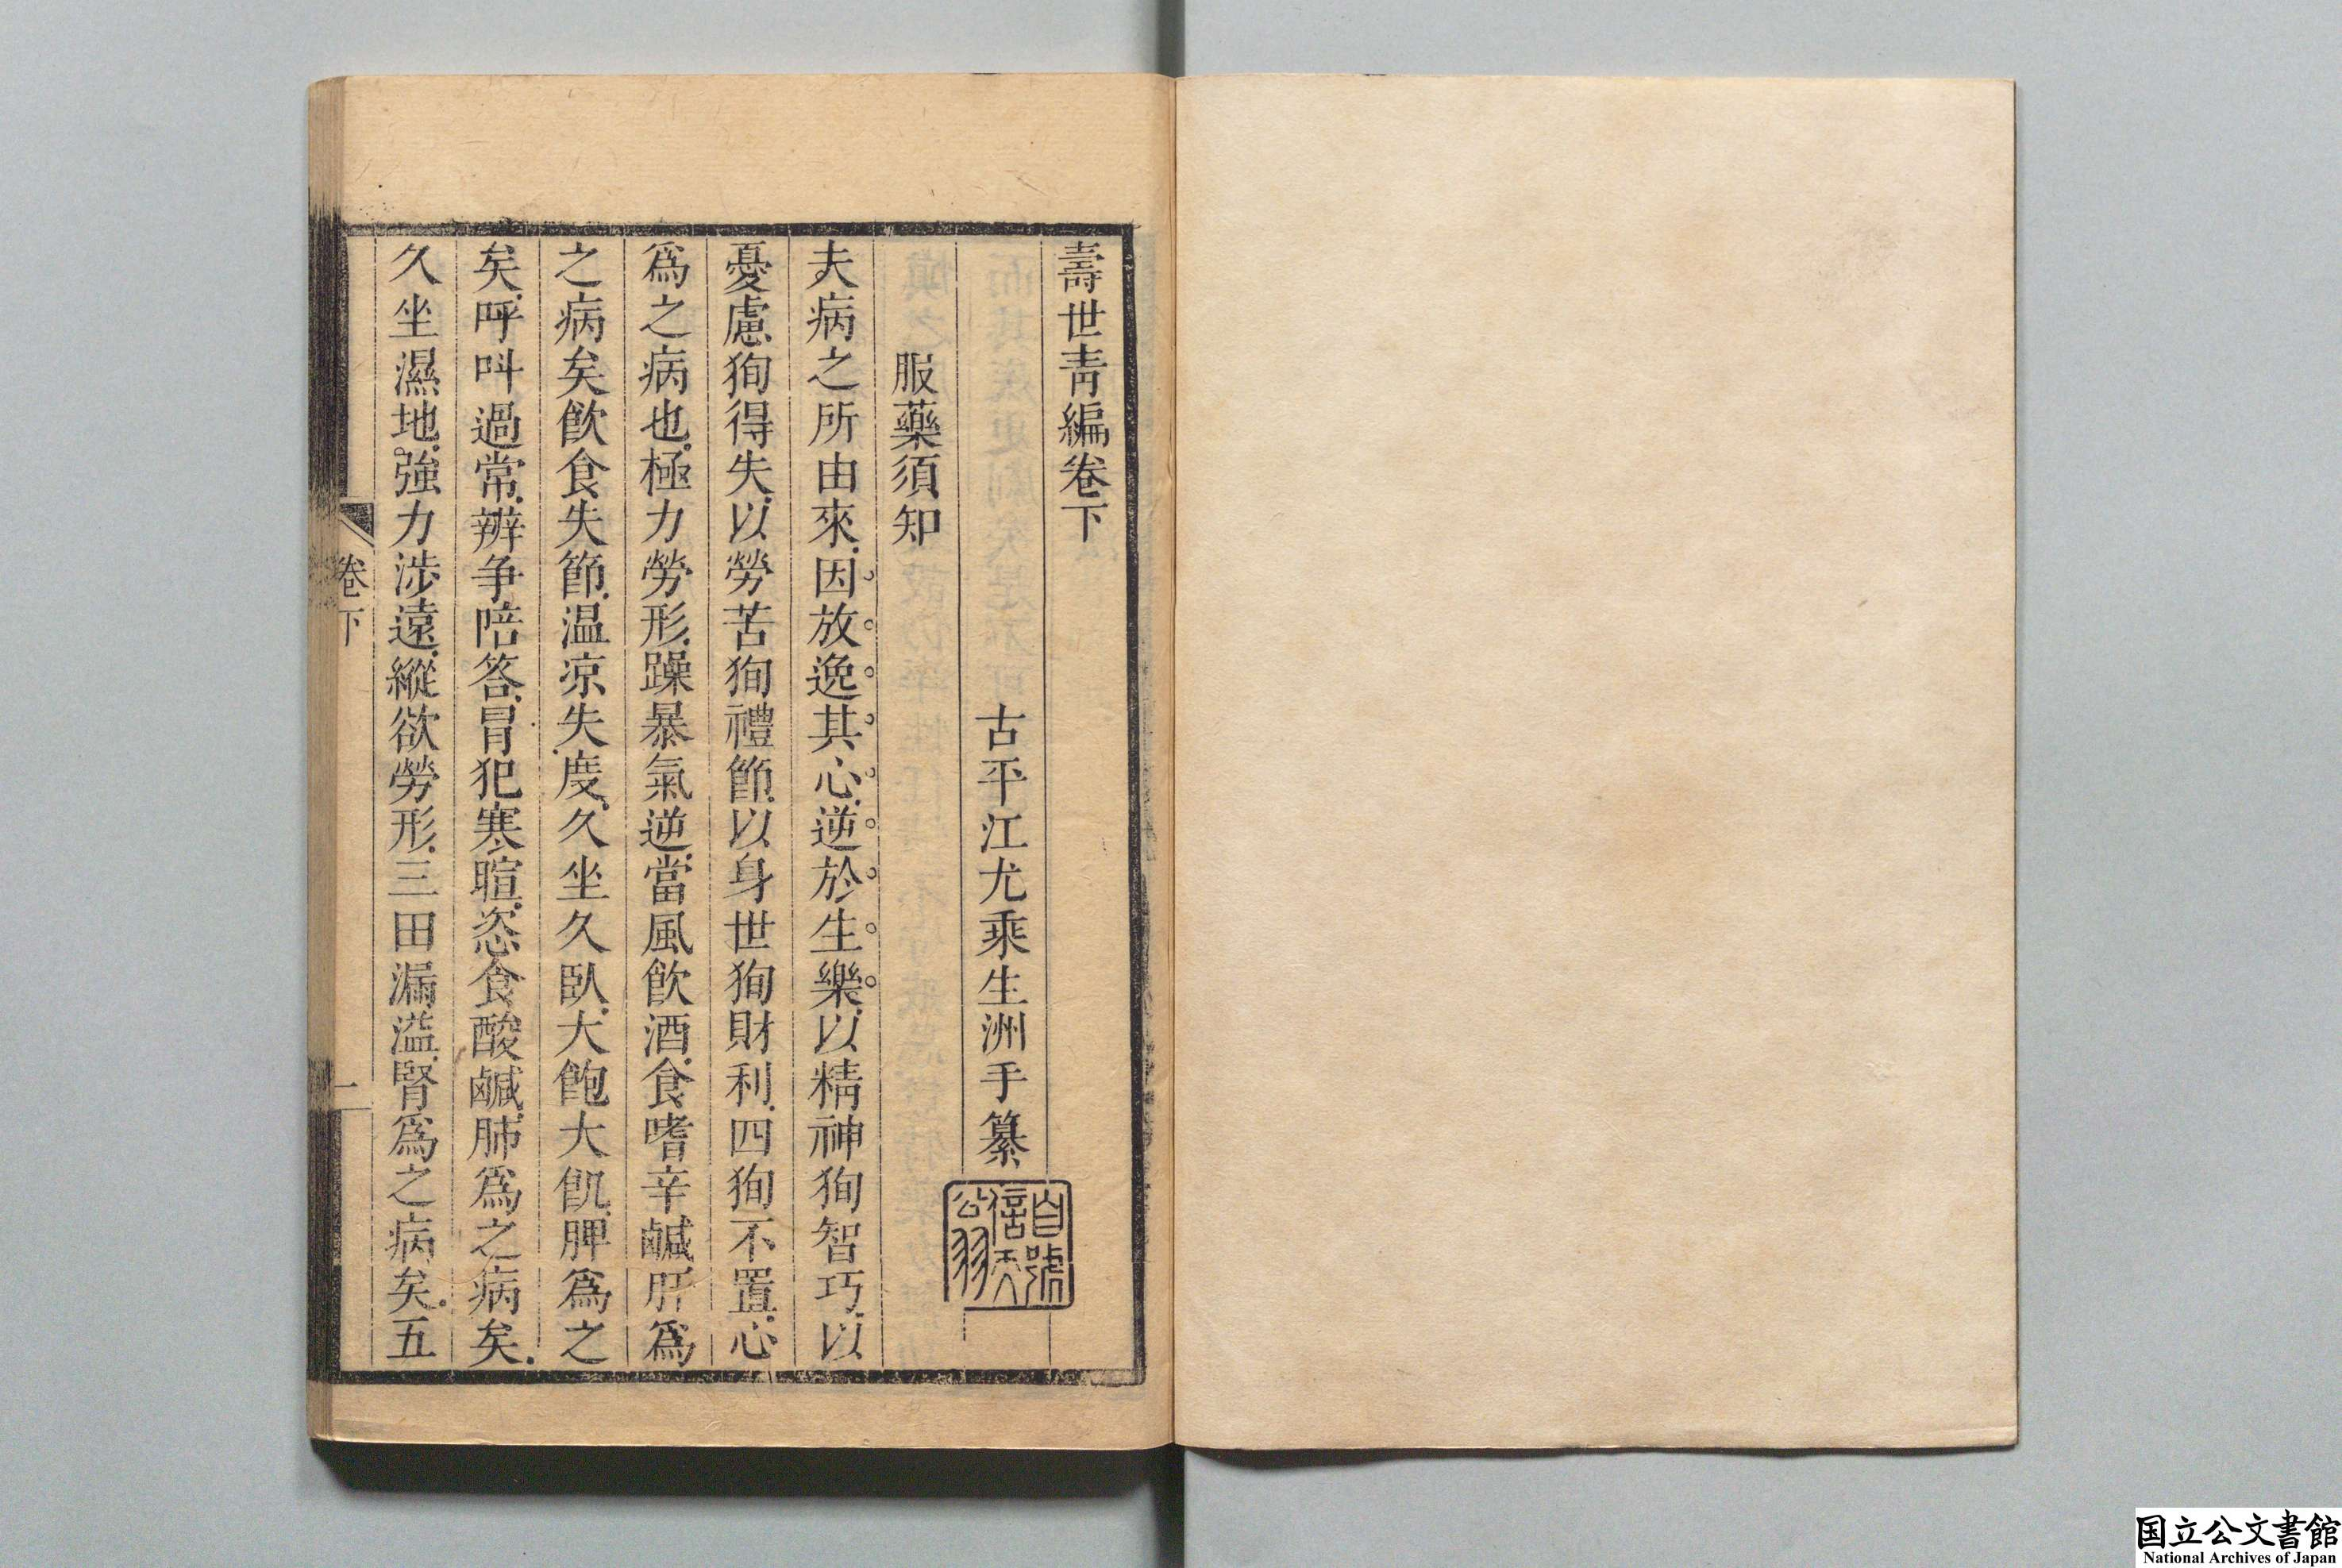 壽世青編卷下
古平江尤乘生洲手纂
自號信天公羽
服藥須知
夫病之所由來因放逸其心逆於生樂以精神狥智巧以
憂慮狥得失以勞苦狥禮節以身世狥財利四狥不置心
爲之病也極力勞形躁暴氣逆當風飲酒食嗜辛鹹肝爲
之病矣飲食失節温凉失度久坐久臥大飽大飢脾爲之
病矣呼叫過常辨争陪答冒犯寒暄恣食酸鹹肺爲之病矣
久坐濕地強力涉遠縱欲勞形三田漏溢腎爲之病矣五
卷下
一
国立公文書館
National Archives of Japan